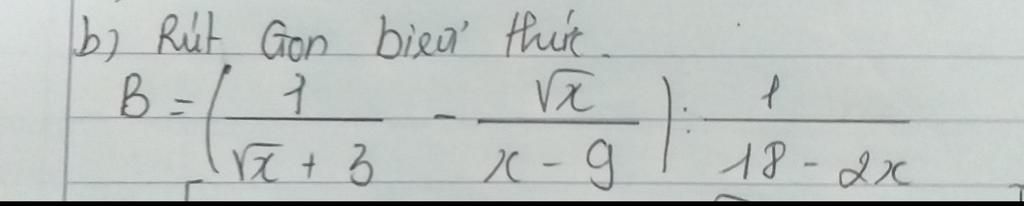 b) Rút Gọn biểu thức.
B = ( 1 / (√x + 3) - √x / (x - 9) ) : 1 / (18 - 2x)